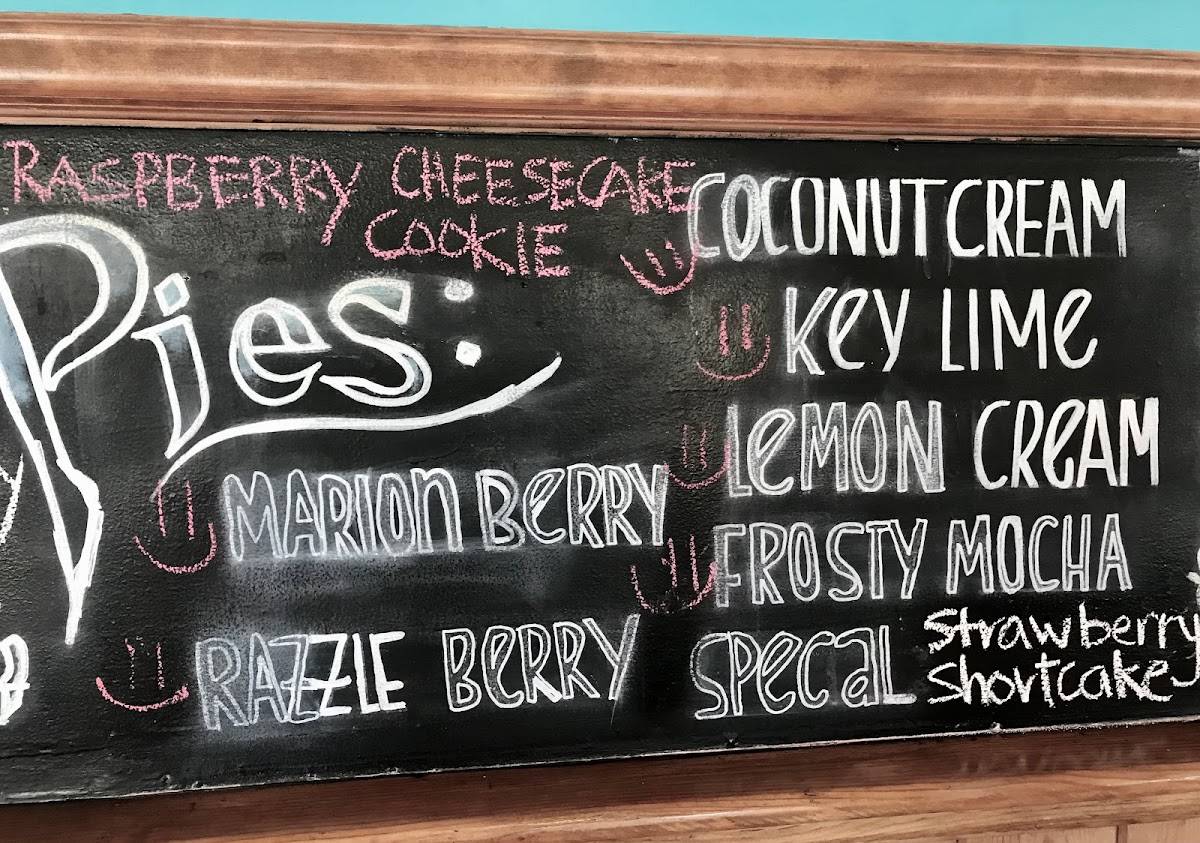 RASPBERRY CHEESECAKE
COOKIE
Pies:
MARION BERRY
RAZZLE BERRY
COCONUT CREAM
KEY LIME
LEMON CREAM
FROSTY MOCHA
SPECAL Strawberry
Shortcake